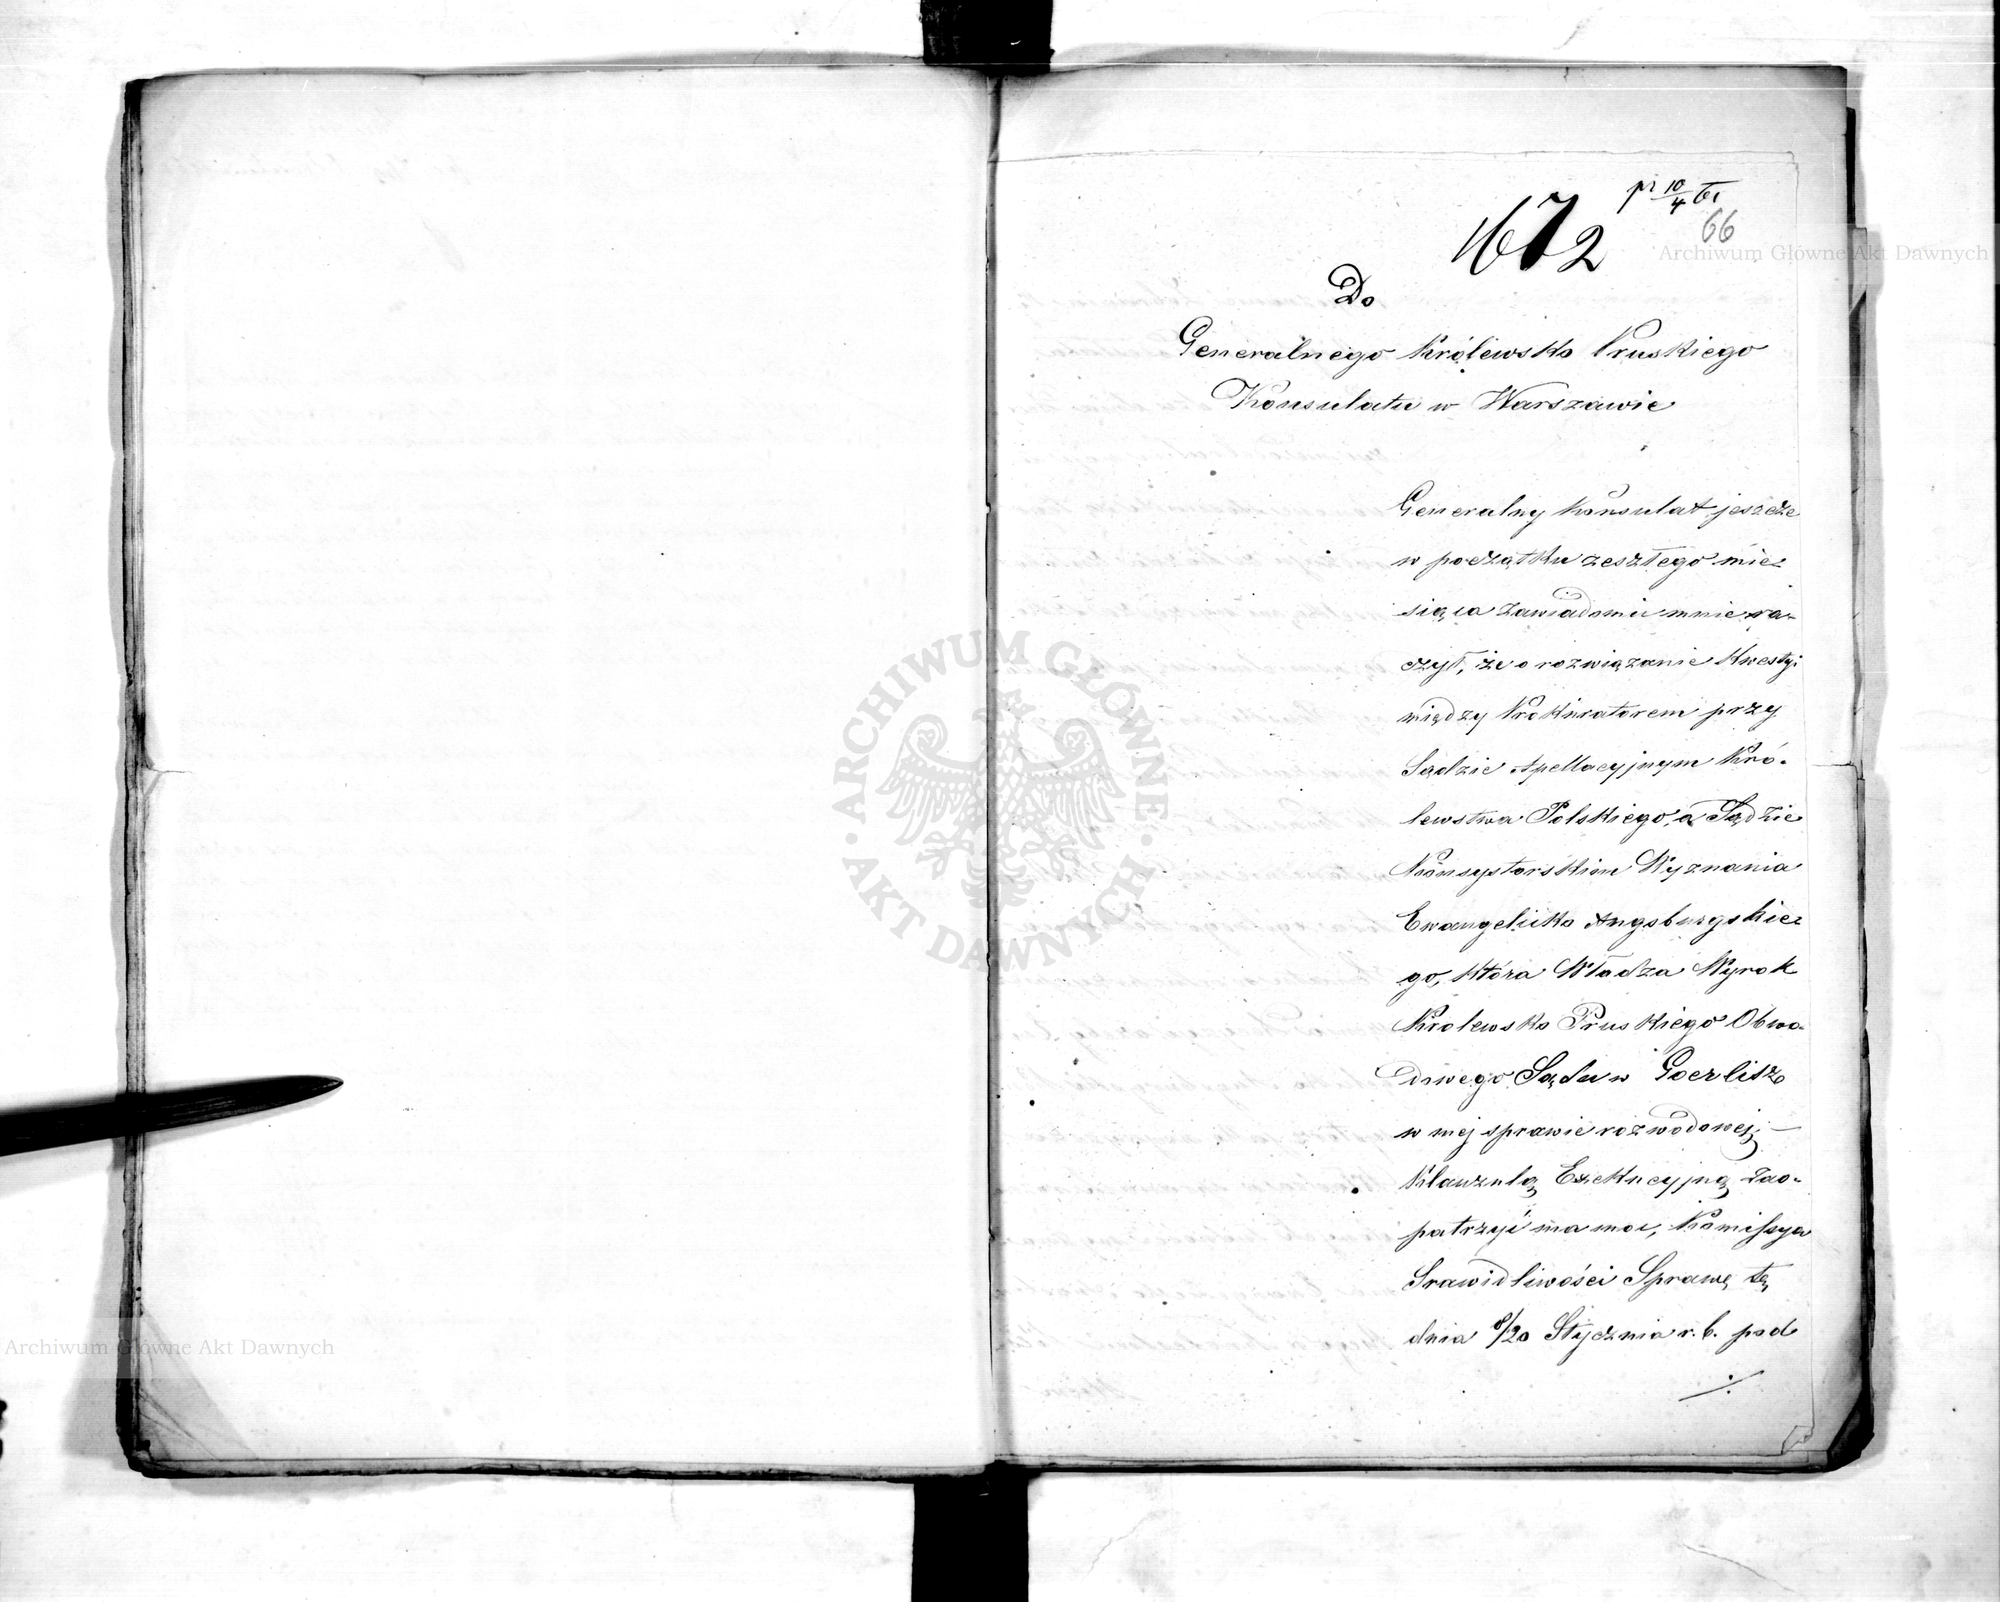 pr 10/4 61
1672
66
Do
Generalnego Królewsko Pruskiego
Konsulatu w Warszawie
Generalny Konsulat jeszcze
w początku zeszłego mie=
siąca zawiadomić mnie ra-
czył, że o rozwiązanie Kwestyi
między Prokuratorem przy
Sądzie Apellacyjnym Kró-
lewstwa Polskiego, a Sądzie
Konsystorskim Wyznania
Ewangelicko Augsburgskie=
go, która Władza Wyrok
Krolewsko Pruskiego Obwo-
dowego Sądu w Goerlitz
w mej sprawie rozwodowej –
Klauzulą Exekucyjną zao-
patrzyć ma moc, Komissya
Srawidliwości Sprawę tę
dnia 8/20 Stycznia r. b. pod
./.
Archiwum Główne Akt Dawnych
ARCHIWUM GŁÓWNE · AKT DAWNYCH ·
Archiwum Główne Akt Dawnych